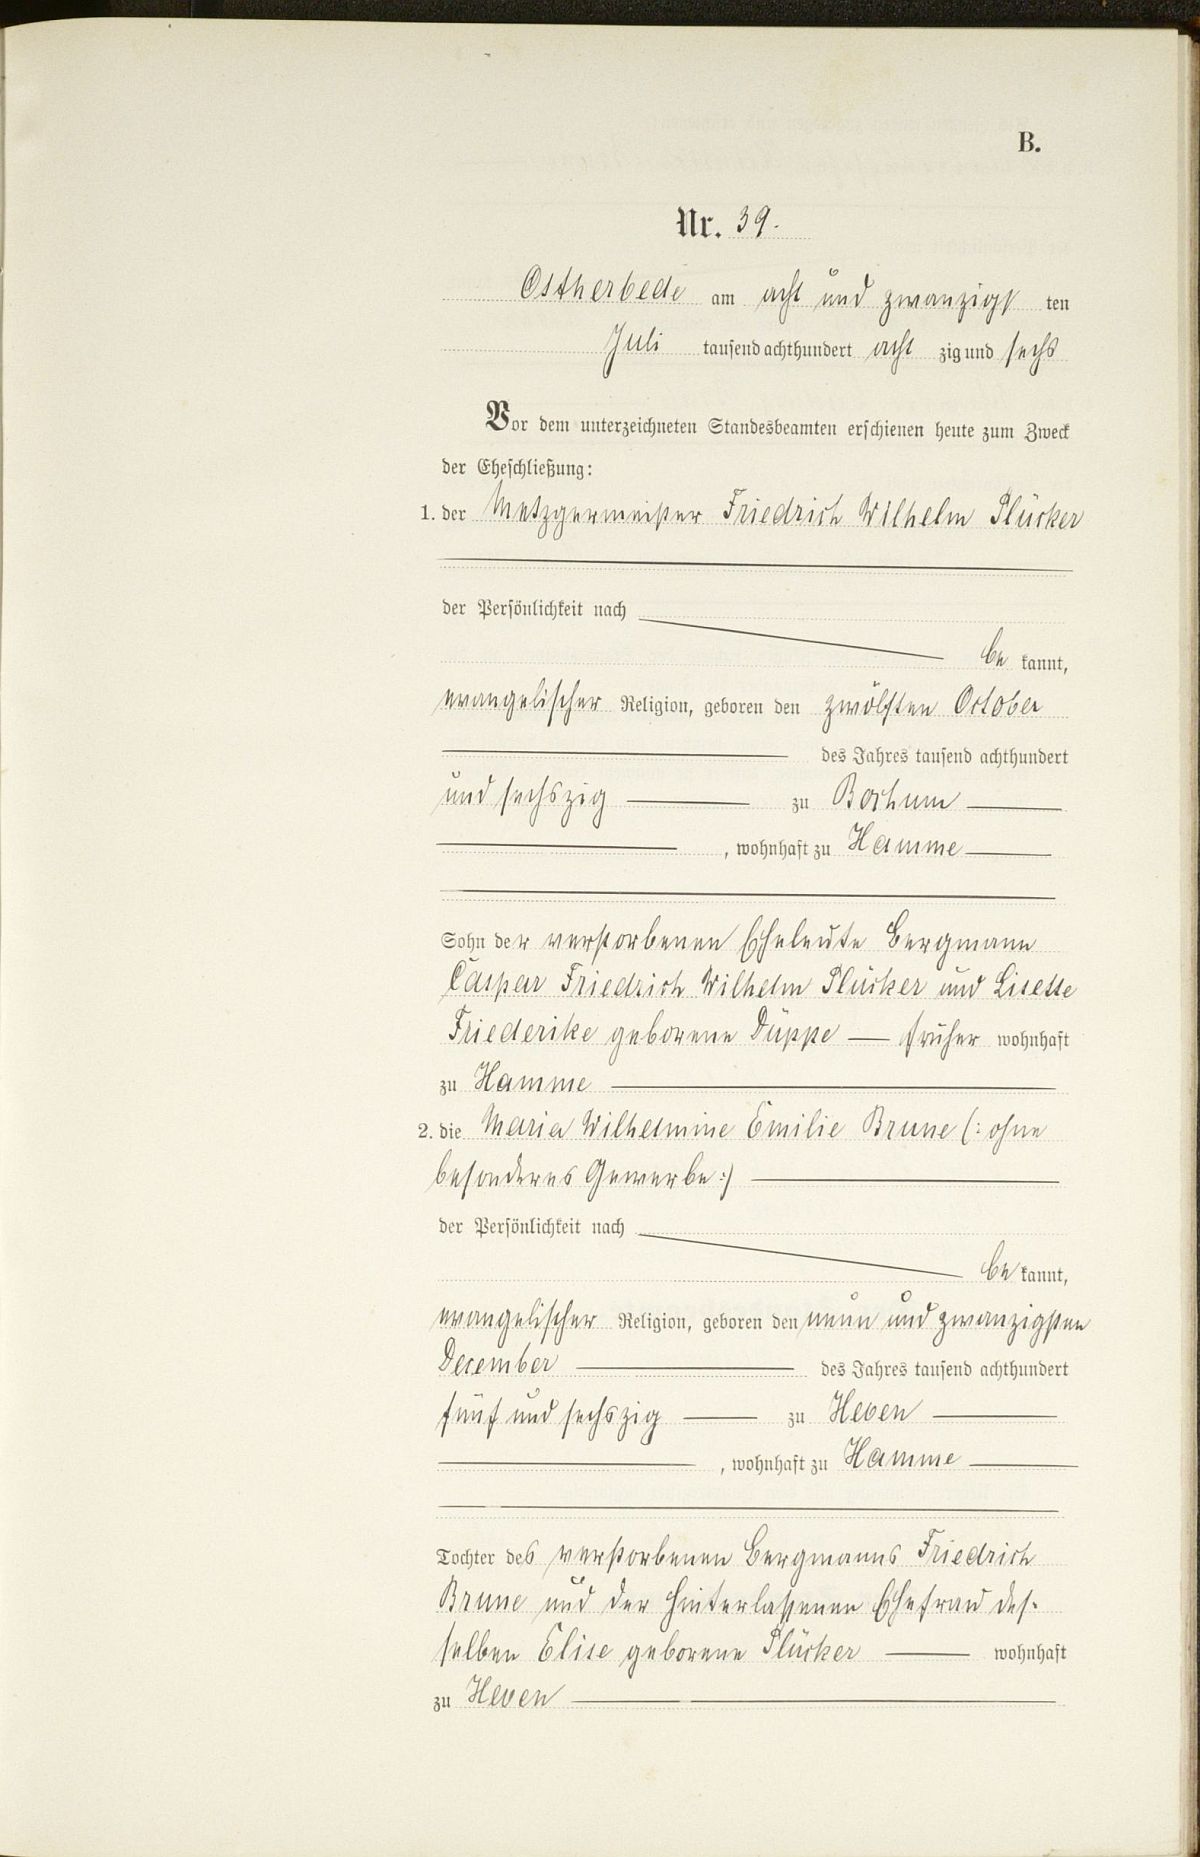 B.
Nr. 39.
Ostherbede am acht und zwanzigsten
Juli tausend achthundert acht zig und sechs
Vor dem unterzeichneten Standesbeamten erschienen heute zum Zweck
der Eheschließung:
1. der Metzgermeister Friedrich Wilhelm Plücker
der Persönlichkeit nach
be kannt,
evangelischer Religion, geboren den zwölften October
des Jahres tausend achthundert
und sechszig zu Bochum
, wohnhaft zu Hamme
Sohn der verstorbenen Eheleute Bergmann
Caspar Friedrich Wilhelm Plücker und Lisette
Friederike geborene Düppe — früher wohnhaft
zu Hamme
2. die Maria Wilhelmine Emilie Brune (: ohne
besonderes Gewerbe :)
der Persönlichkeit nach
be kannt,
evangelischer Religion, geboren den neun und zwanzigsten
December des Jahres tausend achthundert
fünf und sechszig zu Heven
, wohnhaft zu Hamme
Tochter des verstorbenen Bergmanns Friedrich
Brune und der hinterlassenen Ehefrau des-
selben Elise geborene Plücker wohnhaft
zu Heven